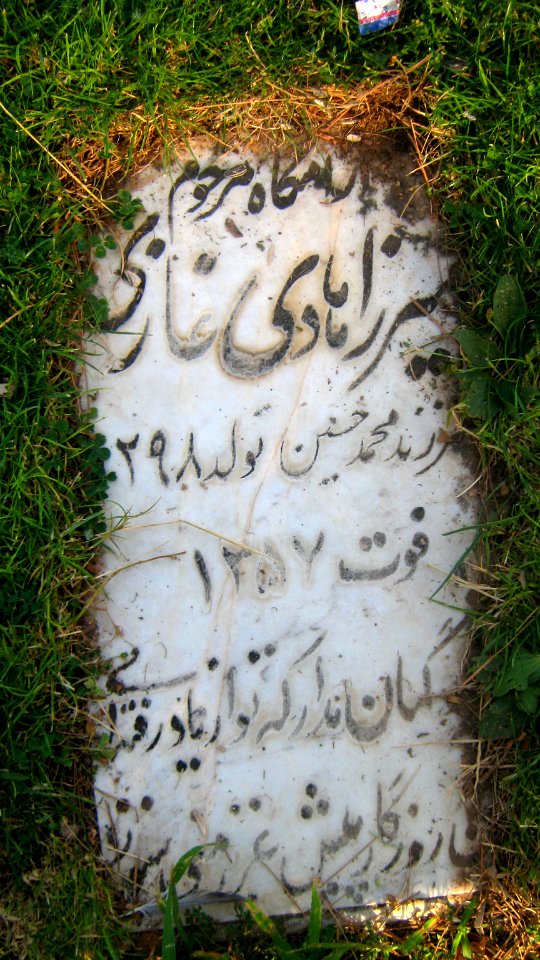 آرامگاه مرحوم
میرزا مادی غازی
فرزند محمد حسین تولد ۲۹۸
فوت ۱۳۵۷
گمان ندار که تو از یاد رفته‌ای
تا روزگار